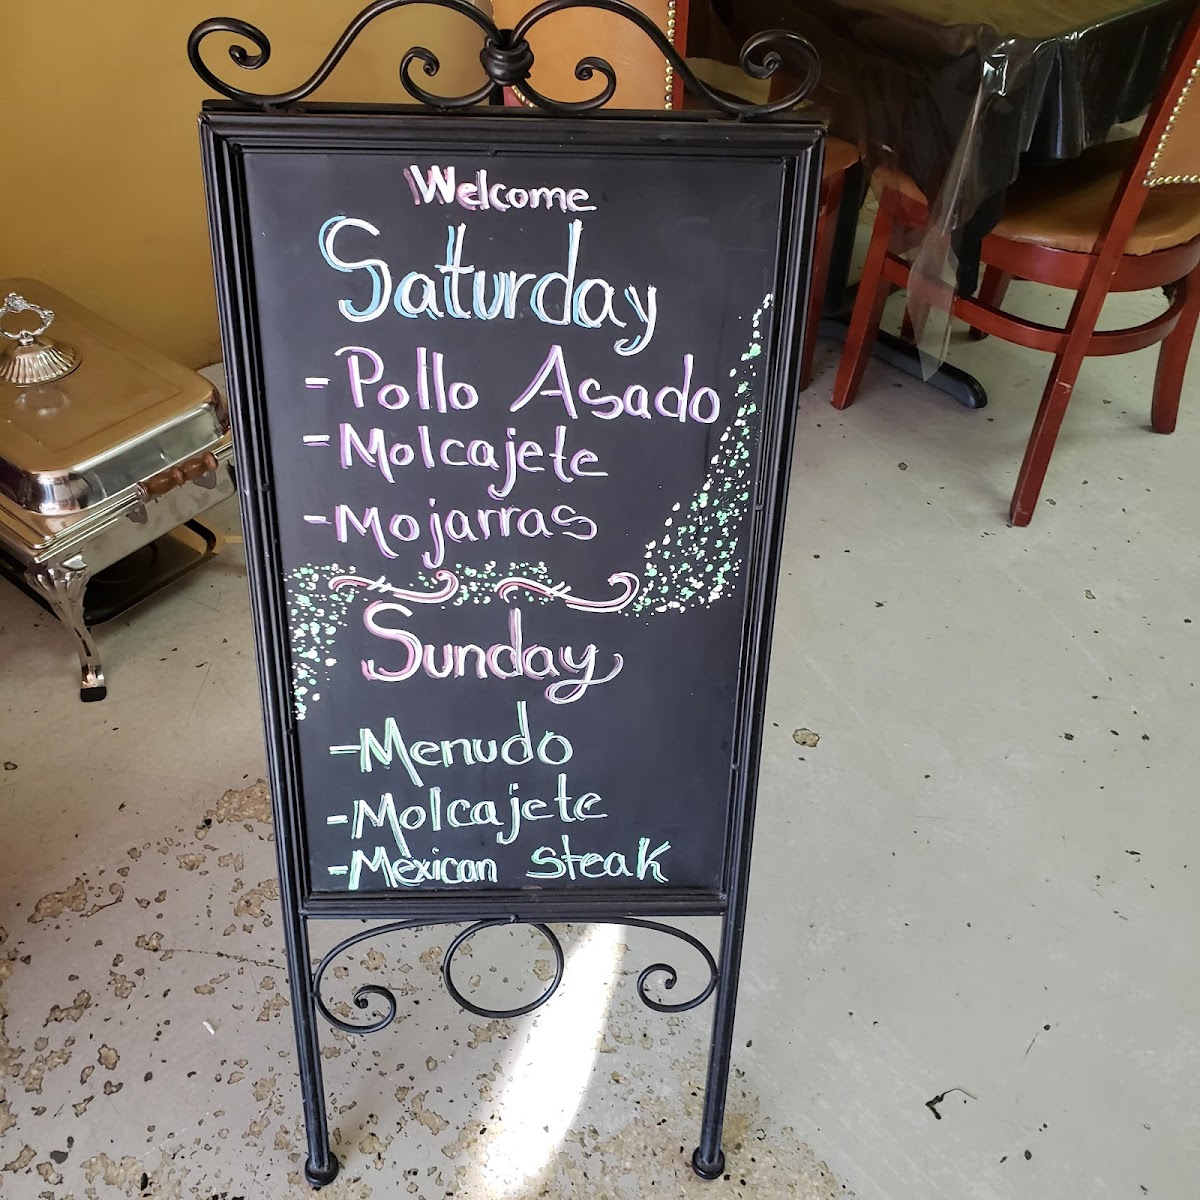 Welcome
Saturday
- Pollo Asado
- Molcajete
- Mojarras
Sunday
- Menudo
- Molcajete
- Mexican steak